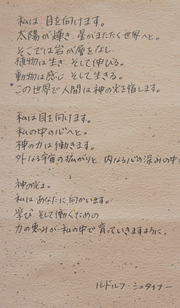 私は 目を向けます。
太陽が輝き 星がまたたく世界へと。
そこでは岩が層をなし
植物は生き そして伸びる。
動物は感じ そして生きる。
この世界で人間は神の光を宿します。
私は目を向けます。
私の中の心へと。
神の力は働きます。
外なる宇宙の拡がりと 内なる心の深みの中
神の光よ。
私はあなたに向かいます。
学び そして働くための
力の恵みが 私の中で 育っていきますように。
ルドルフ・シュタイナー